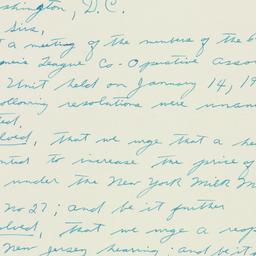 shington, D.C.
Sirs,
t a meeting of the members of the
League Co-Operative Assoc
Unit held on January 14, 19
ollowing resolutions were unani
ted.
olved, that we urge that a hea
nted to increase the price of
under the New York Milk M
No 27; and be it further
olved, that we urge a reop
New Jersey hearing; and be it